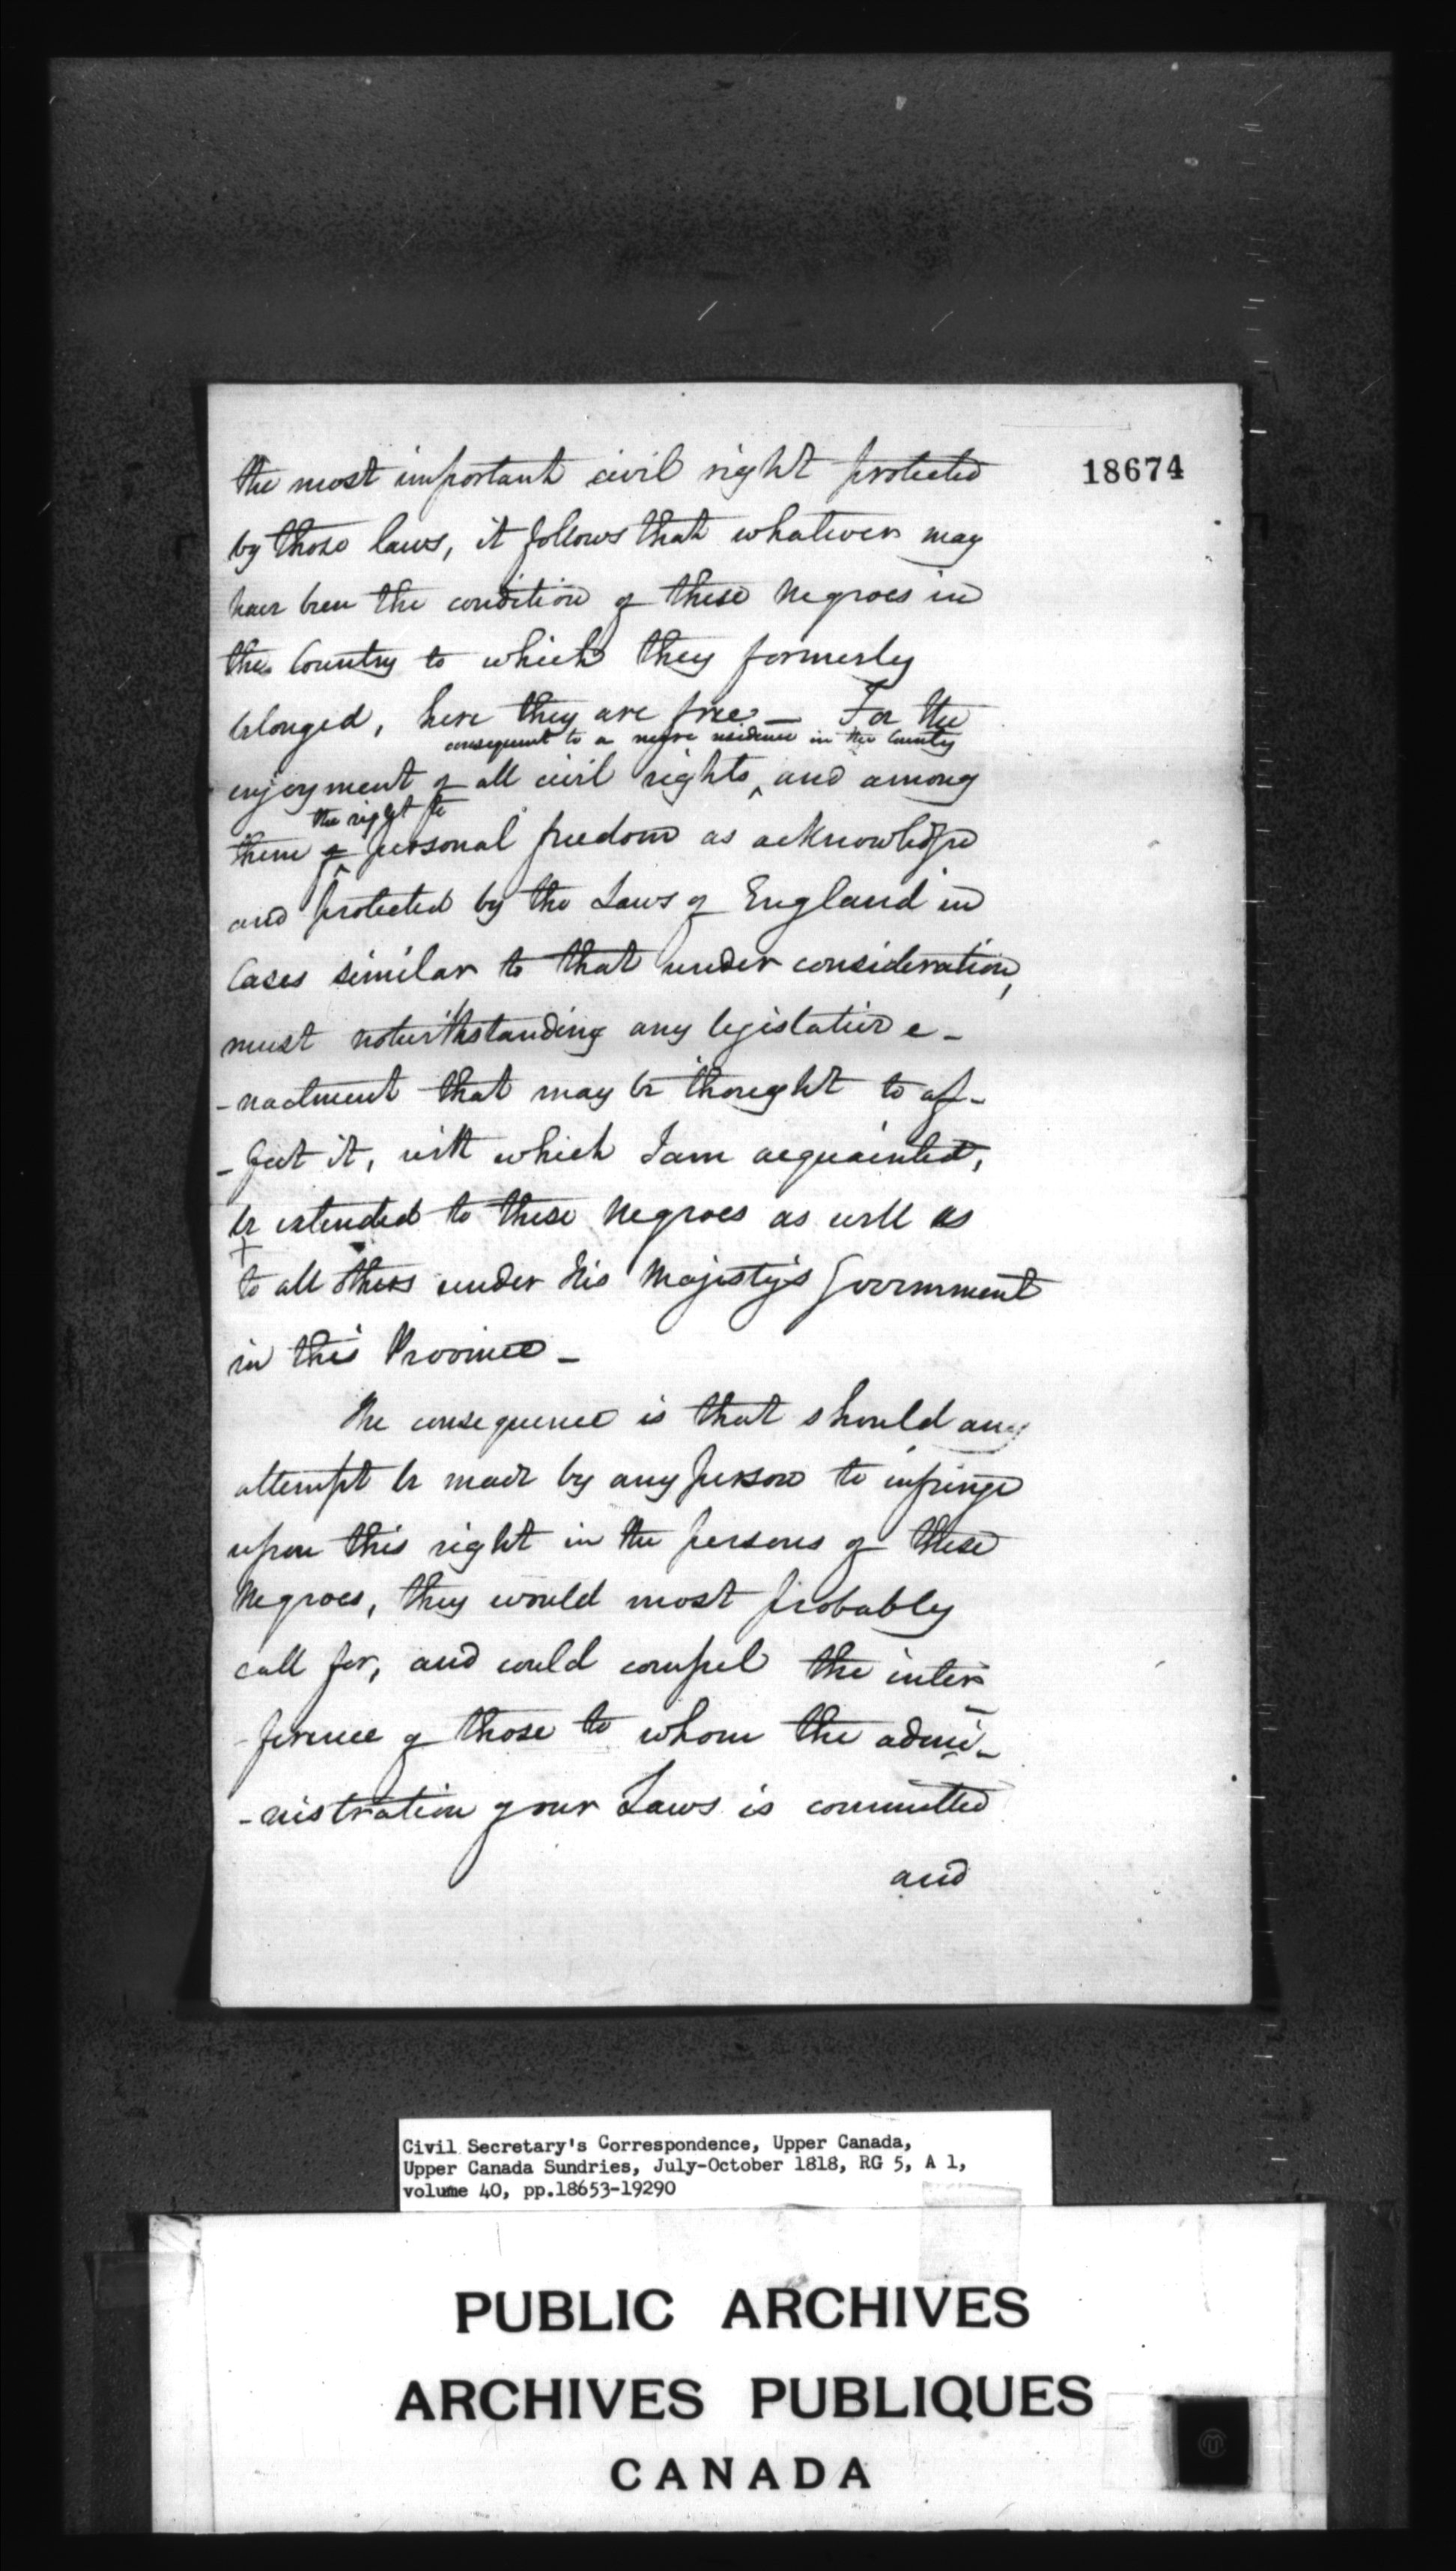 18674
the most important civil right protected
by those laws, it follows that whatever may
have been the condition of these Negroes in
the Country to which they formerly
belonged, here they are free — For the
consequent to a mere residence in the Country
enjoyment of all civil rights ^ and among
the right to
them of personal freedom as acknowledged
and protected by the Laws of England in
Cases similar to that under consideration,
must notwithstanding any legislative e-
-nactment that may be thought to af-
-fect it, with which I am acquainted,
be extended to these Negroes as well as
to all others under His Majesty's Government
in this Province —
The consequence is that should any
attempt be made by any person to infringe
upon this right in the persons of these
Negroes, they would most probably
call for, and could compel the inter
-ference of those to whom the admi-
-nistration of our Laws is committed
and
Civil Secretary's Correspondence, Upper Canada,
Upper Canada Sundries, July-October 1818, RG 5, A 1,
volume 40, pp.18653-19290
PUBLIC ARCHIVES
ARCHIVES PUBLIQUES
CANADA